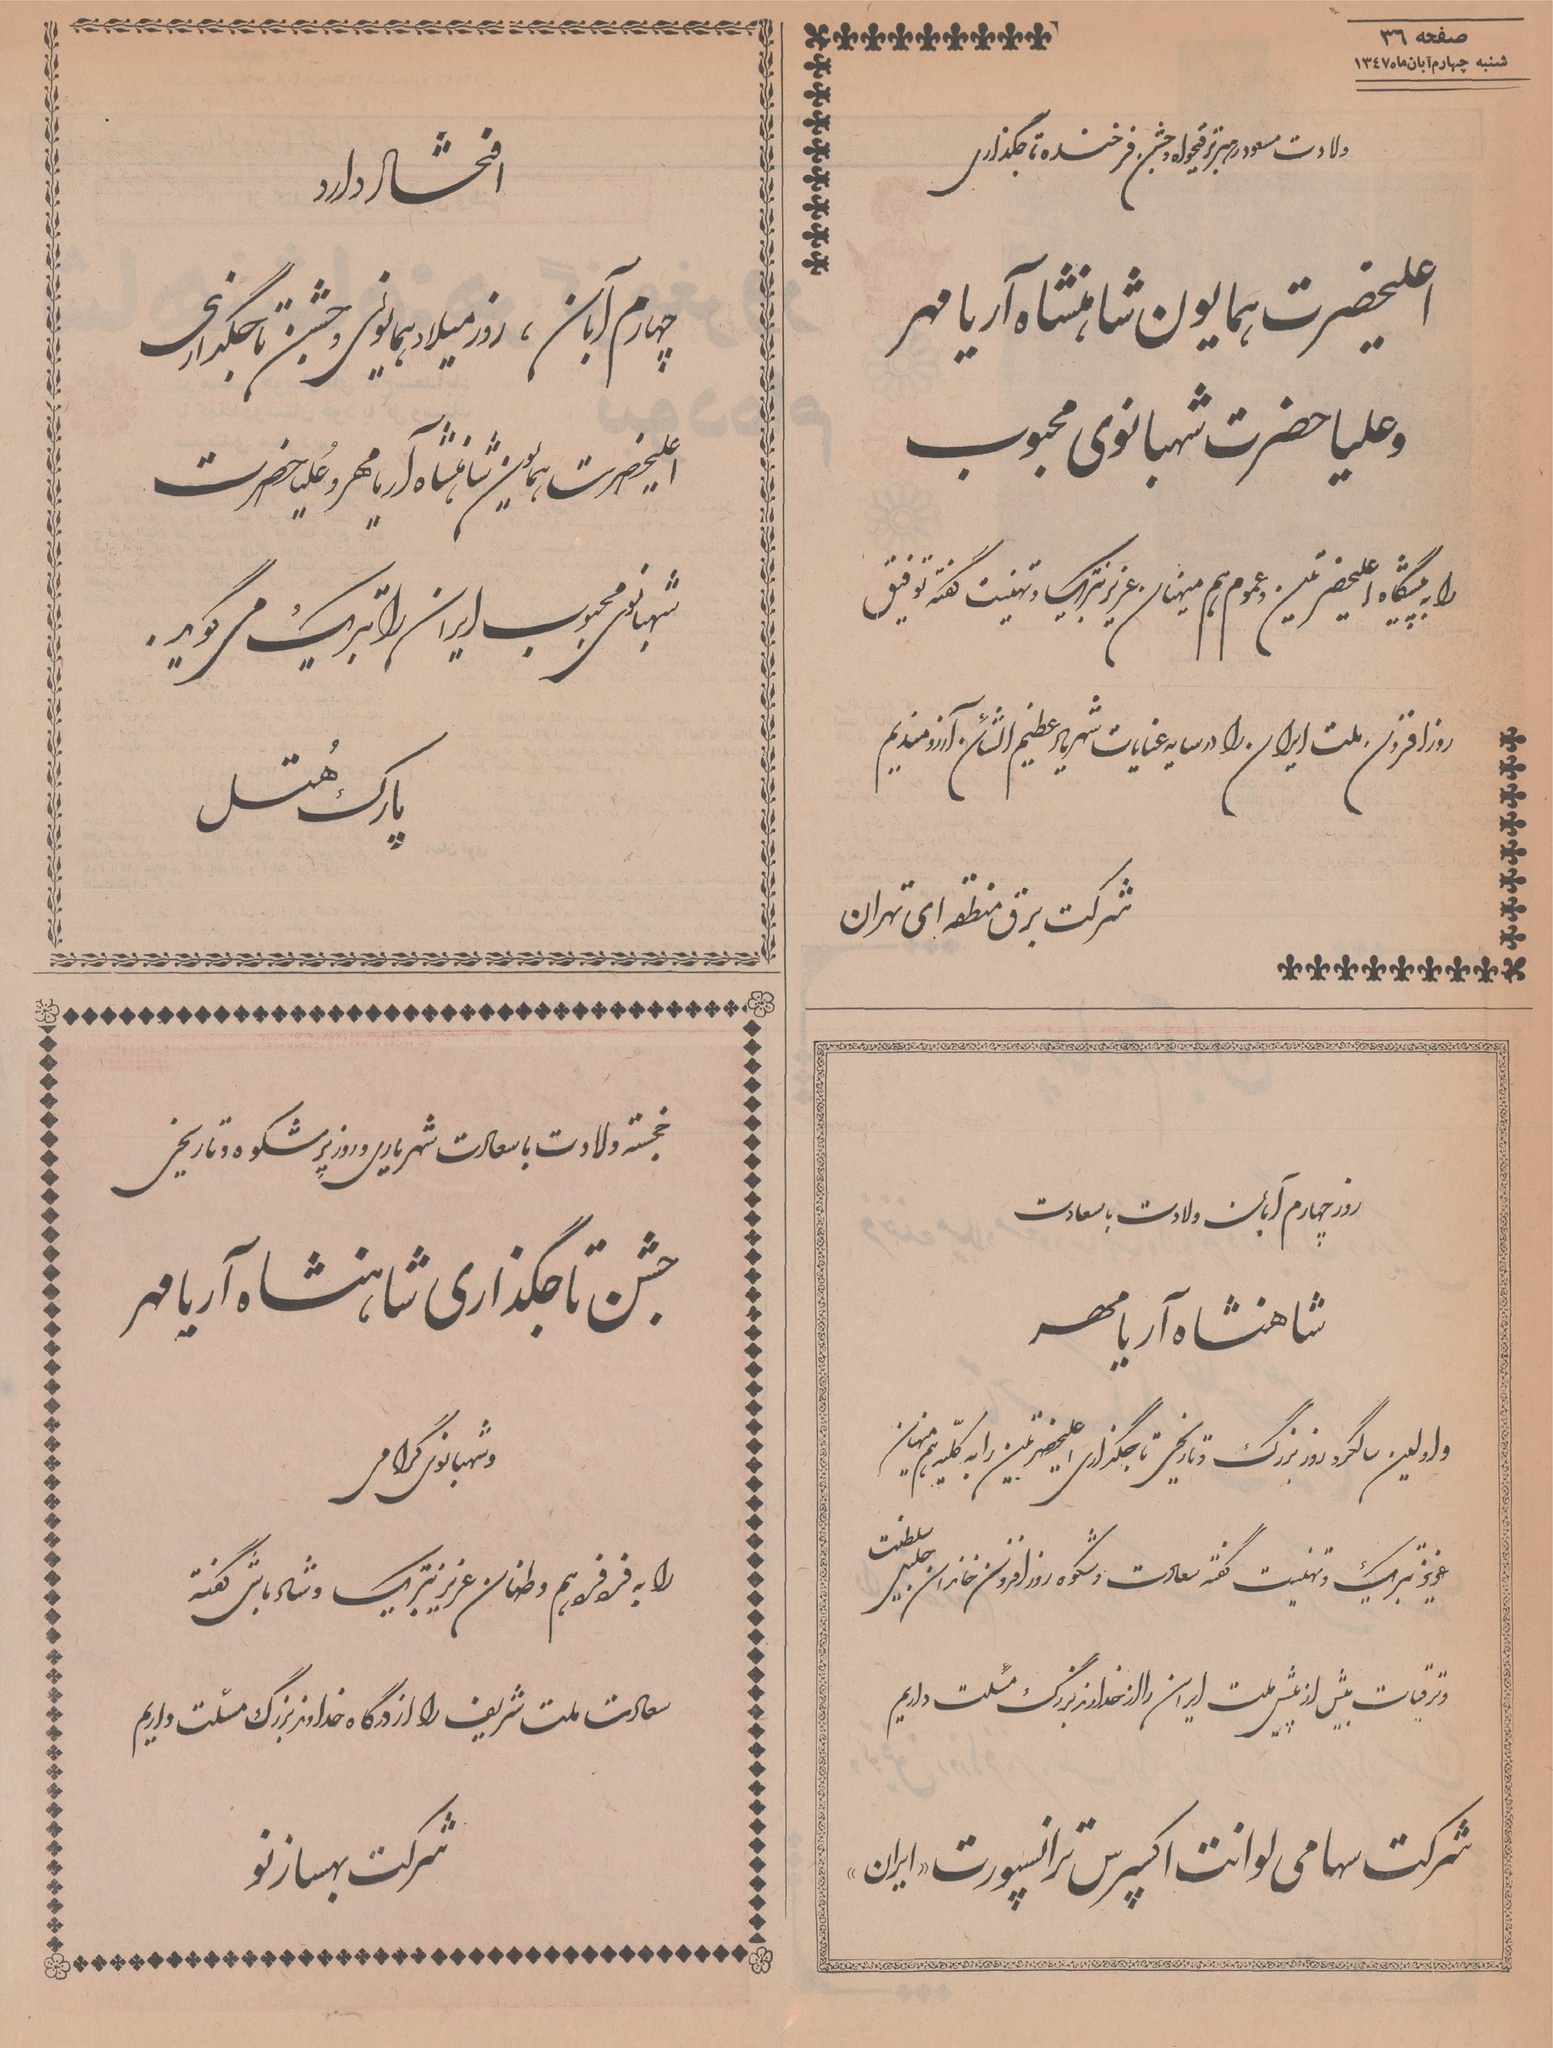 صفحه ۳۶
شنبه چهارم آبان ماه ۱۳۴۷
ولادت مسعود رهبر ترقیخواه و جشن فرخنده تاجگذاری
اعلیحضرت همایون شاهنشاه آریامهر
و علیاحضرت شهبانوی محبوب
را به پیشگاه اعلیحضرتین و عموم هم میهنان عزیز تبریک و تهنیت گفته توفیق
روزافزون ملت ایران را در سایه عنایات شهریار عظیم الشأن آرزومندیم
شرکت برق منطقه ای تهران
افتخار دارد
چهارم آبان ، روز میلاد همایونی و جشن تاجگذاری
اعلیحضرت همایون شاهنشاه آریامهر و علیاحضرت
شهبانوی محبوب ایران را تبریک می گوید.
پارک هتل
روز چهارم آبان ولادت با سعادت
شاهنشاه آریامهر
و اولین سالگرد روز بزرگ و تاریخی تاجگذاری اعلیحضرتین را به کلیه هم میهنان
عزیز تبریک و تهنیت گفته سعادت و شکوه روزافزون خاندان جلیل سلطنت
و ترقیات بیش از پیش ملت ایران را از خداوند بزرگ مسئلت داریم
شرکت سهامی لوانت اکسپرس ترانسپورت «ایران»
خجسته ولادت با سعادت شهریاری و روز پرشکوه و تاریخی
جشن تاجگذاری شاهنشاه آریامهر
و شهبانوی گرامی
را به فرد فرد هم وطنان عزیز تبریک و شادباش گفته
سعادت ملت شریف را از درگاه خداوند بزرگ مسئلت داریم
شرکت بهساز نو